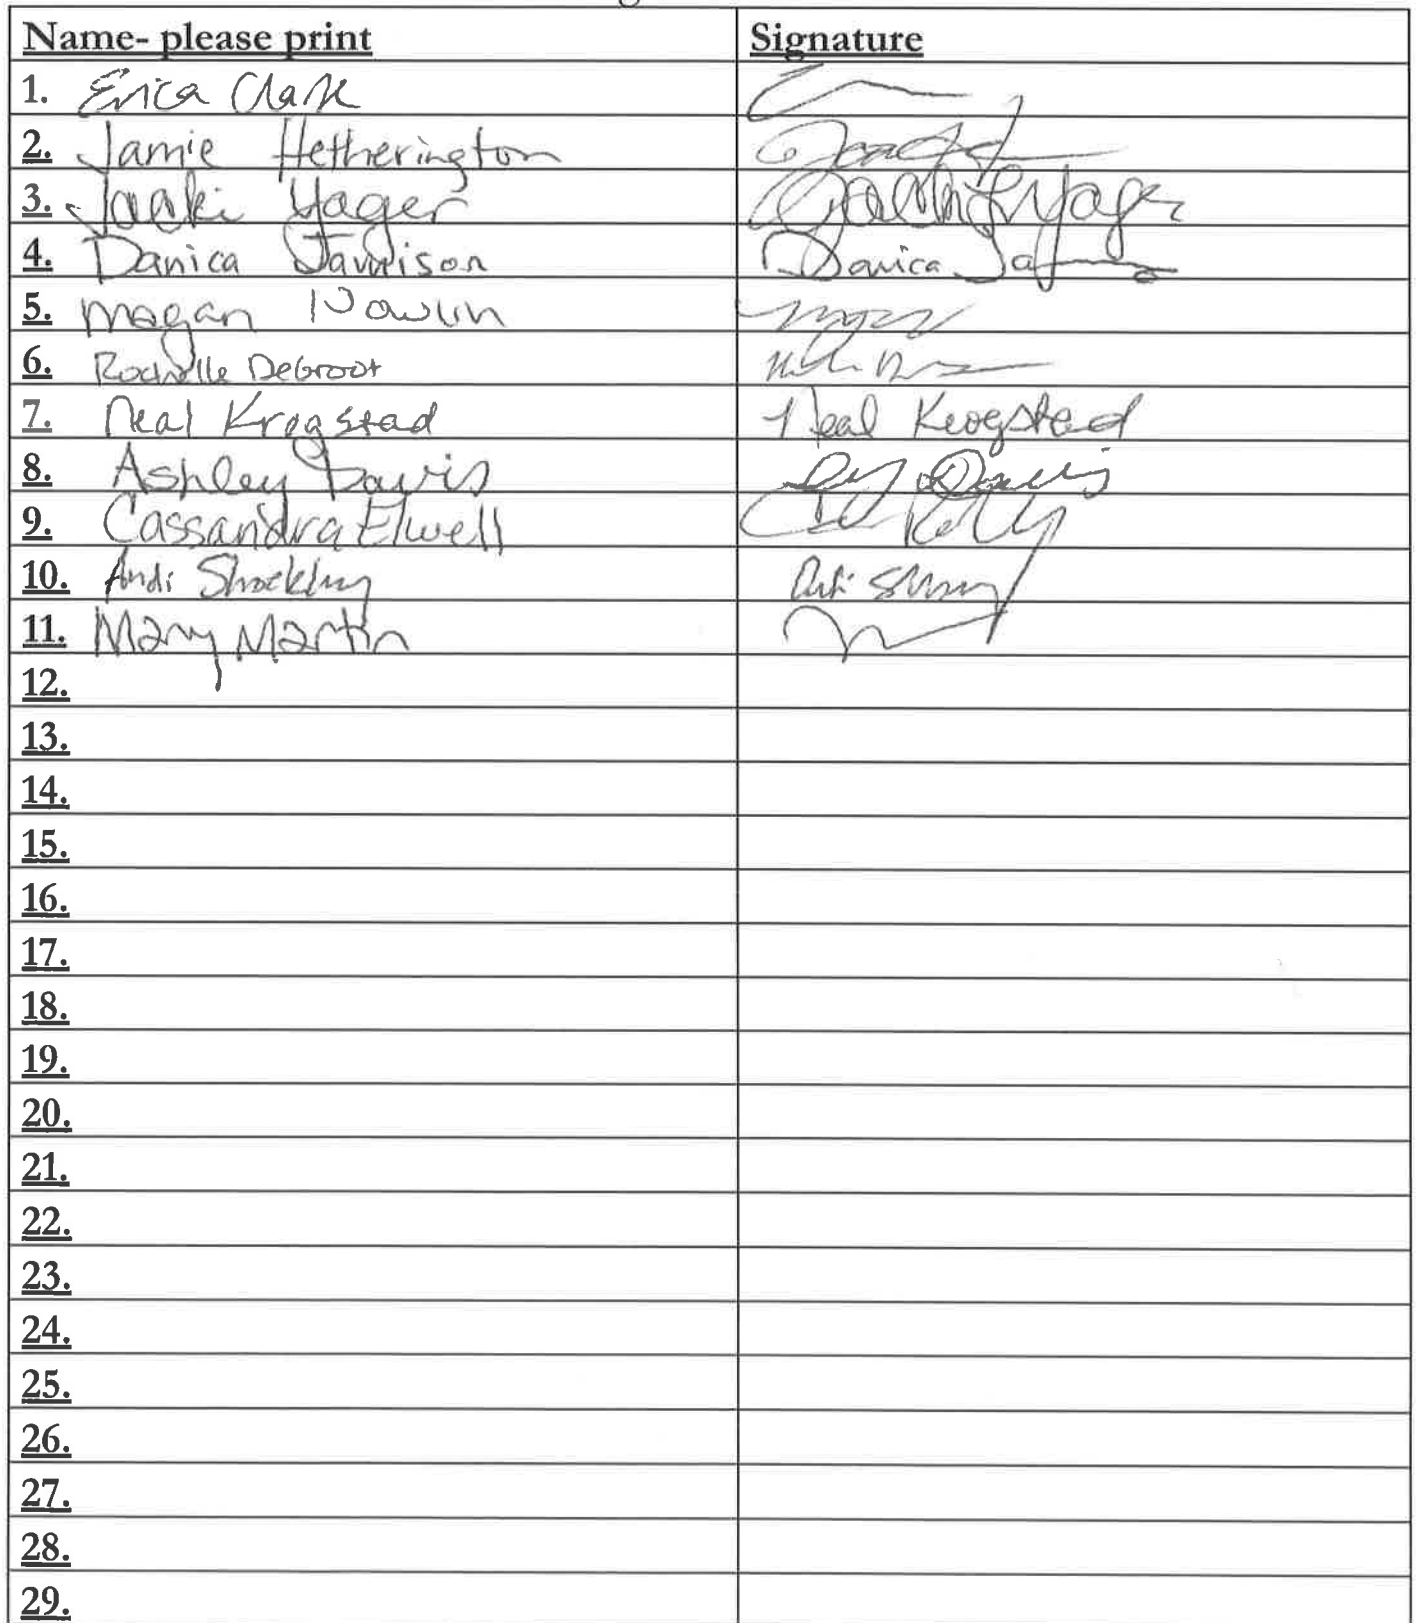 Name- please print Signature
1. Erica Clark
2. Jamie Hetherington
3. Jacki Yager Yager
4. Danica Jamison Danica
5. Megan Nowlin
6. Rochelle DeGroot
7. Neal Krogstad Neal Krogstad
8. Ashley Davis Davis
9. Cassandra Elwell
10. Andi
11. Mary Martin
12.
13.
14.
15.
16.
17.
18.
19.
20.
21.
22.
23.
24.
25.
26.
27.
28.
29.